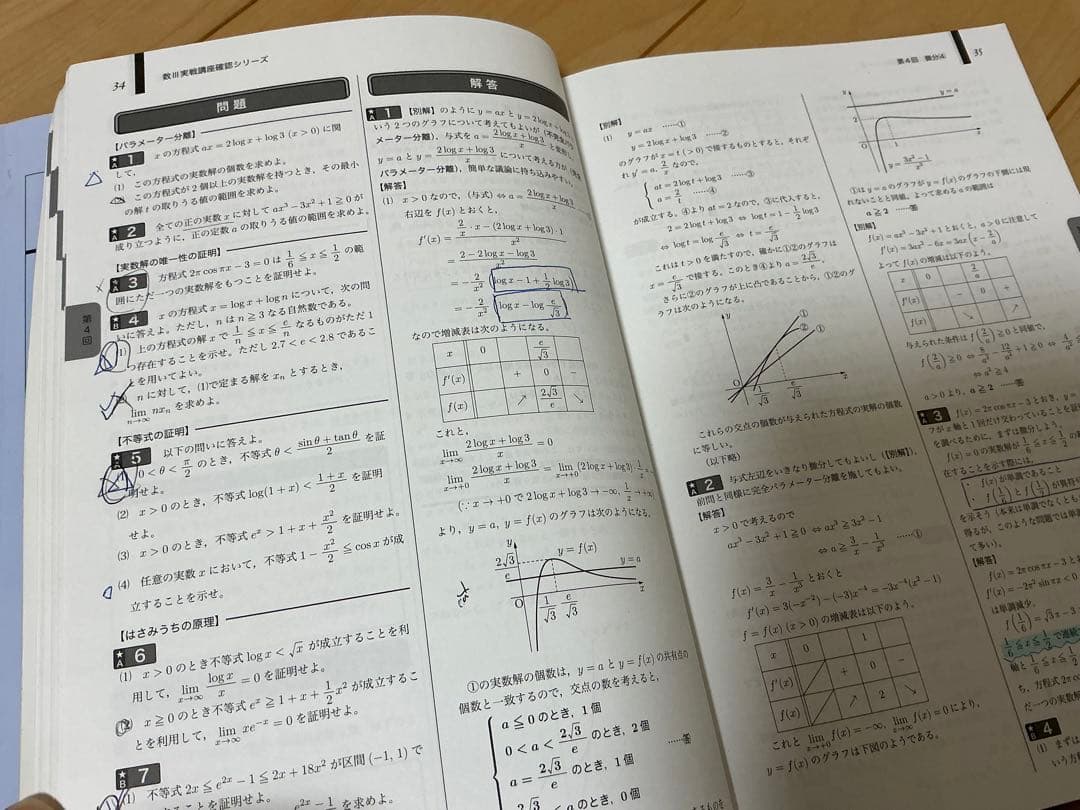 34
数III実戦講座確認シリーズ
問題
【パラメーター分離】
★A 1 xの方程式 ax = 2log x + log 3 (x > 0) に関
して，
(1) この方程式の実数解の個数を求めよ。
(2) この方程式が2個以上の実数解を持つとき，その最小
の解 t の取りうる値の範囲を求めよ。
★A 2 全ての正の実数 x に対して ax³ − 3x² + 1 ≧ 0 が
成り立つように，正の定数 a の取りうる値の範囲を求めよ。
【実数解の唯一性の証明】
3 方程式 2π cos πx − 3 = 0 は 1/6 ≦ x ≦ 1/2 の範
囲にただ一つの実数解をもつことを証明せよ。
4 xの方程式 x = log x + log n について，次の問
いに答えよ。ただし，n は n ≧ 3 なる自然数である。
(1) 上の方程式の解 x で 1/n ≦ x ≦ e/n なるものがただ1
つ存在することを示せ。ただし 2.7 < e < 2.8 であるこ
とを用いてよい。
n に対して，(1)で定まる解を xₙ とするとき，
lim n→∞ nxₙ を求めよ。
第4回
【不等式の証明】
5 以下の問いに答えよ。
0 < θ < π/2 のとき，不等式 θ < (sin θ + tan θ)/2 を証
明せよ。
(2) x > 0 のとき，不等式 log(1 + x) < (1 + x)/2 を証明
せよ。
(3) x > 0 のとき，不等式 eˣ > 1 + x + x²/2 を証明せよ。
(4) 任意の実数 x において，不等式 1 − x²/2 ≦ cos x が成
立することを示せ。
【はさみうちの原理】
★A 6
(1) x > 0 のとき不等式 log x < √x が成立することを利
用して，lim x→∞ log x/x = 0 を証明せよ。
(2) x ≧ 0 のとき不等式 eˣ ≧ 1 + x + 1/2 x² が成立するこ
とを利用して，lim x→∞ xe⁻ˣ = 0 を証明せよ。
★B 7
(1) 不等式 2x ≦ e²ˣ − 1 ≦ 2x + 18x² が区間 (−1, 1) で
解答
★A 1 【別解】のように y = ax と y = 2log x + log 3 と
いう2つのグラフについて考えてもよいが
メーター分離)，与式を a = (2log x + log 3)/x と変形し，
y = a と y = (2log x + log 3)/x について考える方が
パラメーター分離)，簡単な議論に持ち込みやすい。
【解答】
(1) x > 0 なので，(与式) ⇔ a = (2log x + log 3)/x
右辺を f(x) とおくと，
f′(x) = (2/x · x − (2log x + log 3) · 1)/x²
= (2 − 2log x − log 3)/x²
= −2/x² (log x − 1 + 1/2 log 3)
= −2/x² (log x − log e/√3)
なので増減表は次のようになる。
x 0 e/√3
f′(x) + 0 −
f(x) ↗ 2√3/e ↘
これと，
lim x→∞ (2log x + log 3)/x = 0
lim x→+0 (2log x + log 3)/x = lim x→+0 (2log x + log 3) · 1/x
(∵ x → +0 で 2log x + log 3 → −∞, 1/x → +∞)
より，y = a, y = f(x) のグラフは次のようになる。
y
2√3/e
y = f(x)
y = a
O 1/√3 e/√3 x
①の実数解の個数は，y = a と y = f(x) の共有点の
個数と一致するので，交点の数を考えると，
a ≦ 0 のとき，1個
0 < a < 2√3/e のとき，2個
a = 2√3/e のとき，1個 ……答
< a のとき，0個
第4回 微分④
35
【別解】
(1) y = ax ……①
y = 2log x + log 3 ……②
のグラフが x = t (> 0) で接するものとすると，それぞ
れ y′ = a, 2/x なので，
at = 2log t + log 3 ……③
a = 2/t ……④
が成立する。④より at = 2 なので，③に代入すると，
2 = 2log t + log 3 ⇔ log t = 1 − 1/2 log 3
⇔ log t = log e/√3 ⇔ t = e/√3
これは t > 0 を満たすので，確かに①②のグラフは
x = e/√3 で接する。このとき④より a = 2√3/e
さらに②のグラフが上に凸であることから，①②のグ
ラフは次のようになる。
y ① ② ①
O 1/√3 e/√3 x
これらの交点の個数が与えられた方程式の実解の個数
に等しい。
(以下略)
★A 2 与式左辺をいきなり微分してもよいし(【別解】)，
前問と同様に完全パラメーター分離を施してもよい。
【解答】
x > 0 で考えるので
ax³ − 3x² + 1 ≧ 0 ⇔ ax³ ≧ 3x² − 1
⇔ a ≧ 3/x − 1/x³ ……①
f(x) = 3/x − 1/x³ とおくと
f′(x) = 3(−x⁻²) − (−3)x⁻⁴ = −3x⁻⁴(x² − 1)
f = f(x) (x > 0) の増減表は以下のよう。
x 0 1
f′(x) + 0 −
f(x) ↗ 2 ↘
これと lim x→+0 f(x) = −∞, lim x→∞ f(x) = 0 により，
y = f(x) のグラフは下図のようである。
y = a
y = (3x² − 1)/x³
①は y = a のグラフが y = f(x) のグラフの下側には現
れないことと同値。よって求める a の範囲は
a ≧ 2 ……答
【別解】
f(x) = ax³ − 3x² + 1 とおくと，a > 0 に注意して
f′(x) = 3ax² − 6x = 3ax(x − 2/a)
よって f(x) の増減は以下のよう。
x 0 2/a
f′(x) − 0 +
f(x) ↘ ↗
与えられた条件は f(2/a) ≧ 0 と同値で，
f(2/a) ≧ 0 ⇔ 8/a² − 12/a² + 1 ≧ 0 ⇔
⇔ a² ≧ 4
a > 0 より，a ≧ 2 ……答
★A 3 f(x) = 2π cos πx − 3 とおき，y =
フが x 軸と1回だけ交わっていることを
を調べるために，まずは微分しよう。
f(x) = 0 の実数解が 1/6 ≦ x ≦ 1/2
在することを示す際には，
・f(x) が単調であること
・f(1/6) と f(1/2) が異符号
を示そう (本来は単調でなくとも
得るが，このような問題では単調
て多い)。
【解答】
f(x) = 2π cos πx − 3 と
f′(x) = −2π² sin πx < 0
は単調減少。
f(1/6) = √3π − 3
1/6 ≦ x ≦ 1/2 で連続
軸と 1/6 ≦ x ≦
ち，方程式 2π co
だ一つの実数解が
4
(1) まずは
いう方